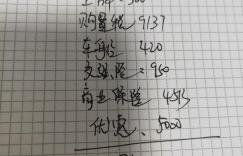 购置税 9137
车船 420
交强险 = 950
商业保险 4515
优惠、5000